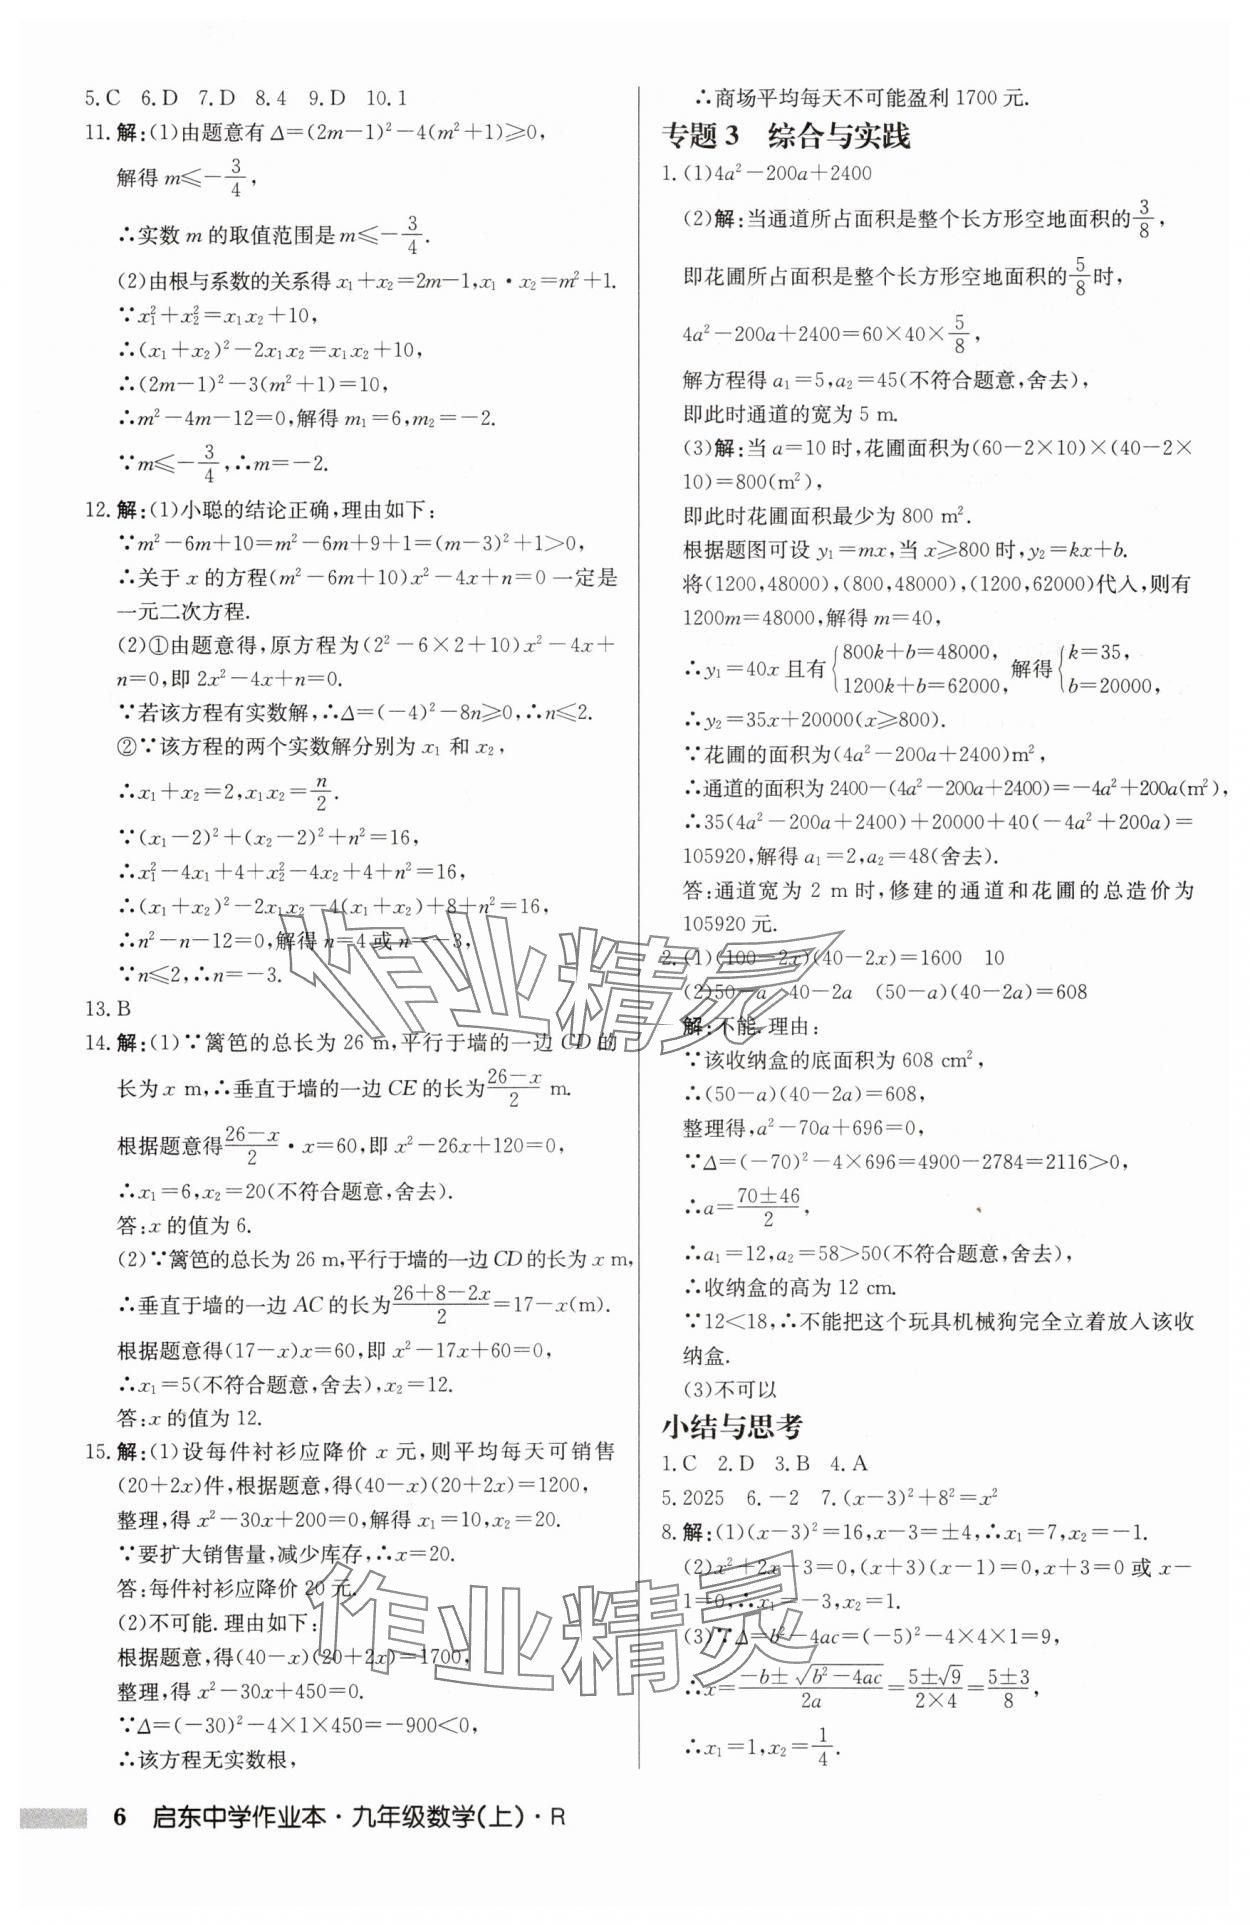 5.C 6.D 7.D 8.4 9.D 10.1
11.解:(1)由题意有Δ=(2m-1)²-4(m²+1)≥0,
解得 m≤-3/4,
∴实数 m 的取值范围是 m≤-3/4.
(2)由根与系数的关系得 x₁+x₂=2m-1,x₁·x₂=m²+1.
∵x₁²+x₂²=x₁x₂+10,
∴(x₁+x₂)²-2x₁x₂=x₁x₂+10,
∴(2m-1)²-3(m²+1)=10,
∴m²-4m-12=0,解得 m₁=6,m₂=-2.
∵m≤-3/4,∴m=-2.
12.解:(1)小聪的结论正确,理由如下:
∵m²-6m+10=m²-6m+9+1=(m-3)²+1>0,
∴关于 x 的方程(m²-6m+10)x²-4x+n=0 一定是
一元二次方程.
(2)①由题意得,原方程为(2²-6×2+10)x²-4x+
n=0,即 2x²-4x+n=0.
∵若该方程有实数解,∴Δ=(-4)²-8n≥0,∴n≤2.
②∵该方程的两个实数解分别为 x₁ 和 x₂,
∴x₁+x₂=2,x₁x₂=n/2.
∵(x₁-2)²+(x₂-2)²+n²=16,
∴x₁²-4x₁+4+x₂²-4x₂+4+n²=16,
∴(x₁+x₂)²-2x₁x₂-4(x₁+x₂)+8+n²=16,
∴n²-n-12=0,解得 n=4 或 n=-3,
∵n≤2,∴n=-3.
13.B
14.解:(1)∵篱笆的总长为 26 m,平行于墙的一边 CD 的
长为 x m,∴垂直于墙的一边 CE 的长为(26-x)/2 m.
根据题意得(26-x)/2·x=60,即 x²-26x+120=0,
∴x₁=6,x₂=20(不符合题意,舍去).
答:x 的值为 6.
(2)∵篱笆的总长为 26 m,平行于墙的一边 CD 的长为 x m,
∴垂直于墙的一边 AC 的长为(26+8-2x)/2=17-x(m).
根据题意得(17-x)x=60,即 x²-17x+60=0,
∴x₁=5(不符合题意,舍去),x₂=12.
答:x 的值为 12.
15.解:(1)设每件衬衫应降价 x 元,则平均每天可销售
(20+2x)件,根据题意,得(40-x)(20+2x)=1200,
整理,得 x²-30x+200=0,解得 x₁=10,x₂=20.
∵要扩大销售量,减少库存,∴x=20.
答:每件衬衫应降价 20 元.
(2)不可能.理由如下:
根据题意,得(40-x)(20+2x)=1700,
整理,得 x²-30x+450=0.
∵Δ=(-30)²-4×1×450=-900<0,
∴该方程无实数根,
∴商场平均每天不可能盈利 1700 元.
专题 3 综合与实践
1.(1)4a²-200a+2400
(2)解:当通道所占面积是整个长方形空地面积的3/8,
即花圃所占面积是整个长方形空地面积的5/8时,
4a²-200a+2400=60×40×5/8,
解方程得 a₁=5,a₂=45(不符合题意,舍去),
即此时通道的宽为 5 m.
(3)解:当 a=10 时,花圃面积为(60-2×10)×(40-2×
10)=800(m²),
即此时花圃面积最少为 800 m².
根据题图可设 y₁=mx,当 x≥800 时,y₂=kx+b.
将(1200,48000),(800,48000),(1200,62000)代入,则有
1200m=48000,解得 m=40,
∴y₁=40x 且有{800k+b=48000, 1200k+b=62000, 解得{k=35, b=20000,
∴y₂=35x+20000(x≥800).
∵花圃的面积为(4a²-200a+2400)m²,
∴通道的面积为 2400-(4a²-200a+2400)=-4a²+200a(m²),
∴35(4a²-200a+2400)+20000+40(-4a²+200a)=
105920,解得 a₁=2,a₂=48(舍去).
答:通道宽为 2 m 时,修建的通道和花圃的总造价为
105920 元.
2.(1)(100-2x)(40-2x)=1600 10
(2)50-a 40-2a (50-a)(40-2a)=608
解:不能.理由:
∵该收纳盒的底面积为 608 cm²,
∴(50-a)(40-2a)=608,
整理得,a²-70a+696=0,
∵Δ=(-70)²-4×696=4900-2784=2116>0,
∴a=(70±46)/2,
∴a₁=12,a₂=58>50(不符合题意,舍去),
∴收纳盒的高为 12 cm.
∵12<18,∴不能把这个玩具机械狗完全立着放入该收
纳盒.
(3)不可以
小结与思考
1.C 2.D 3.B 4.A
5.2025 6.-2 7.(x-3)²+8²=x²
8.解:(1)(x-3)²=16,x-3=±4,∴x₁=7,x₂=-1.
(2)x²+2x-3=0,(x+3)(x-1)=0,x+3=0 或 x-
1=0,∴x₁=-3,x₂=1.
(3)∵Δ=b²-4ac=(-5)²-4×4×1=9,
∴x=(-b±√(b²-4ac))/2a=(5±√9)/(2×4)=(5±3)/8,
∴x₁=1,x₂=1/4.
作业精灵
作业精灵
6 启东中学作业本·九年级数学(上)·R